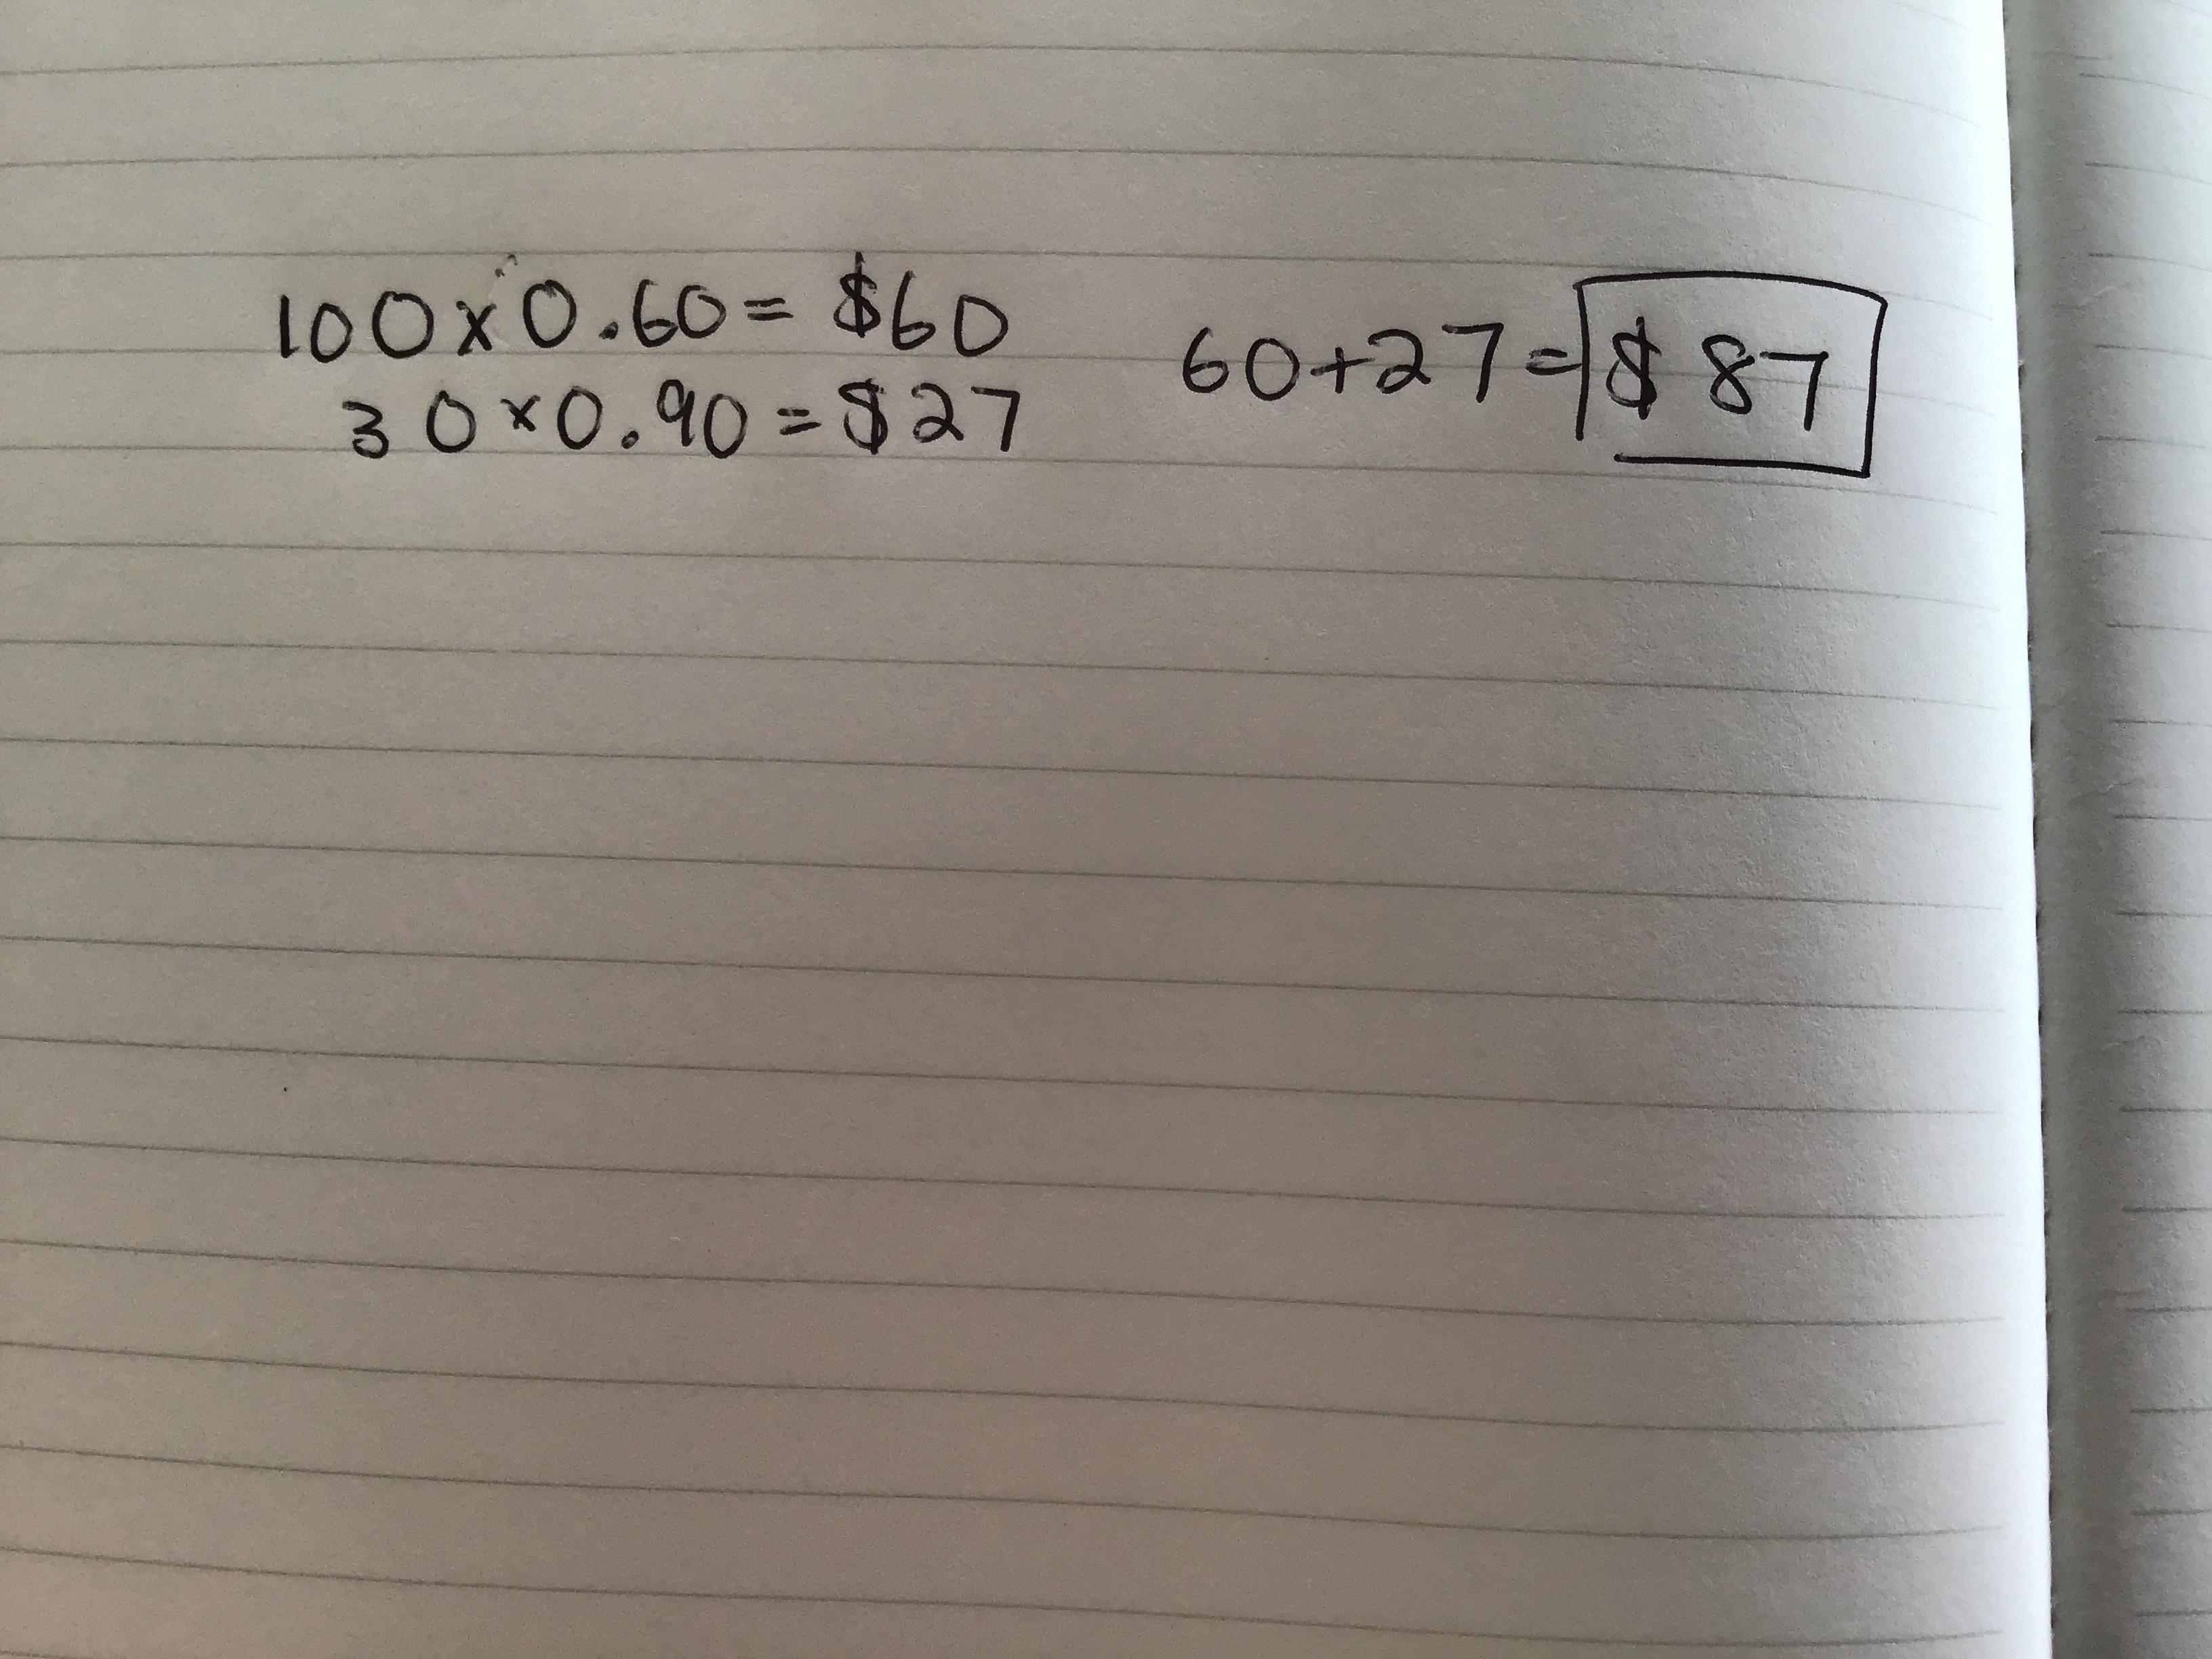 100x0.60= $60
30x0.90=$27
60+27=$87